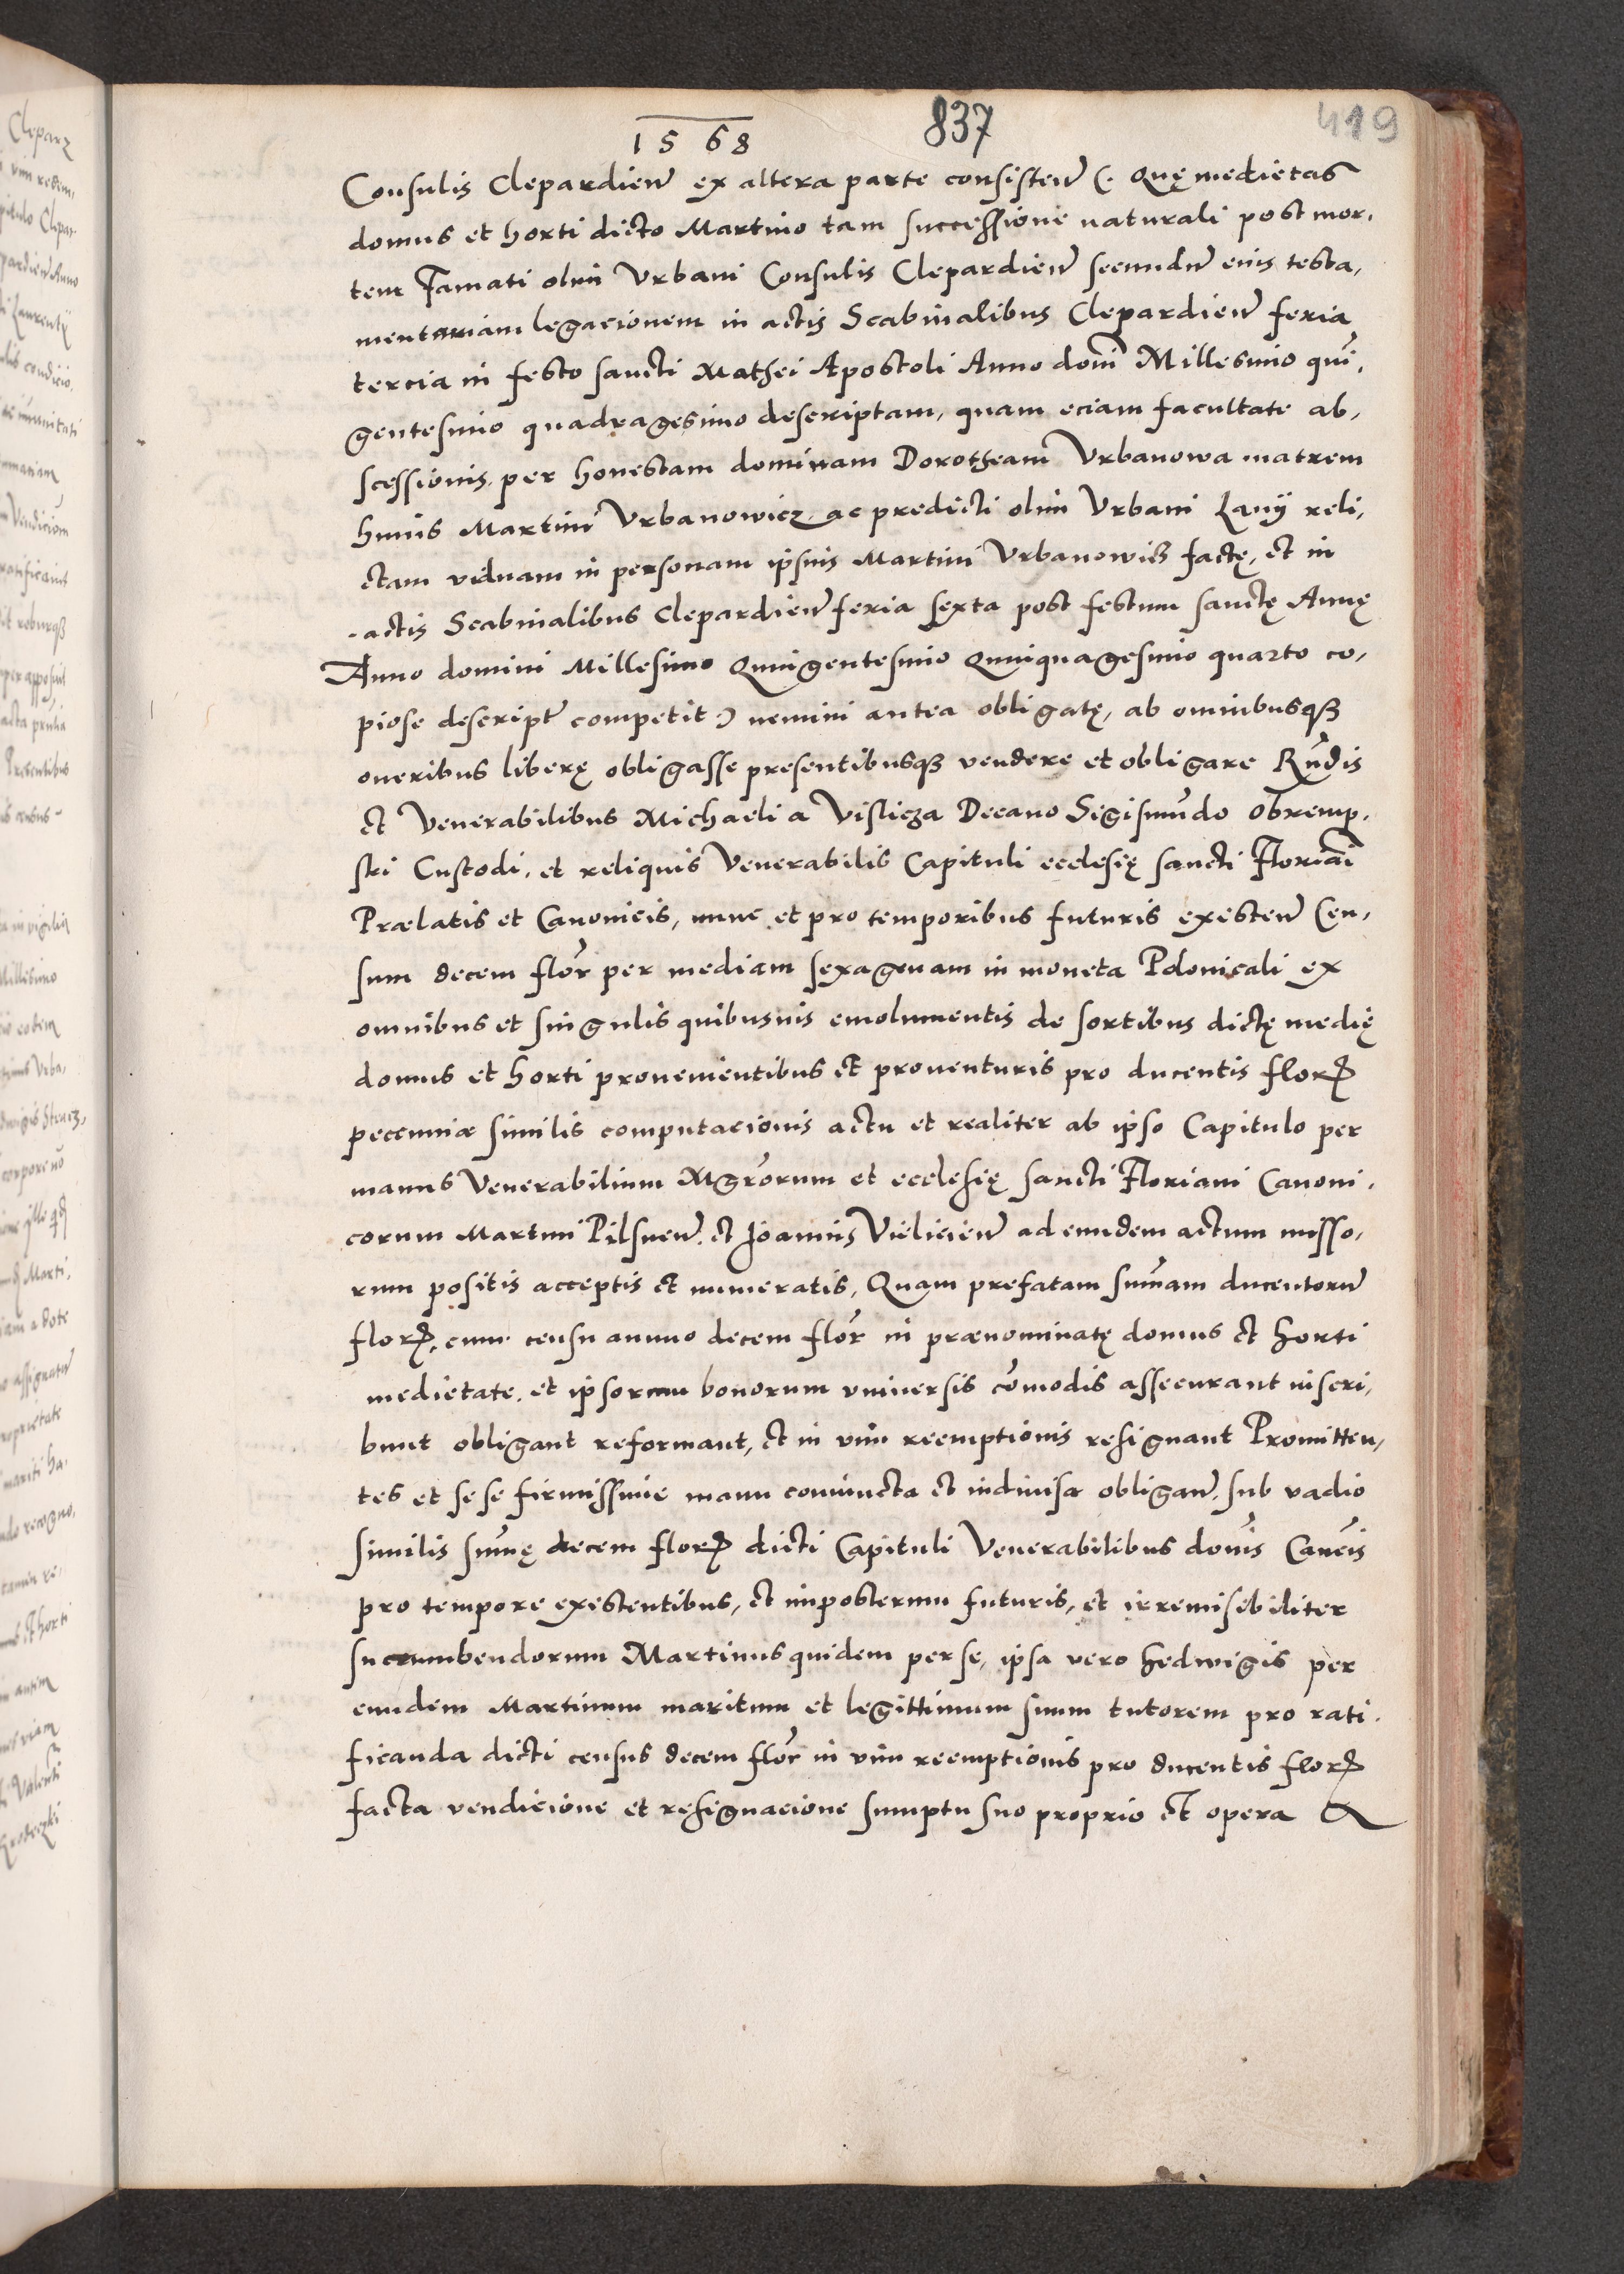 1568 837 419
Consulis Clepardien̄ ex altera parte consisten̄ (. Quę medietas
domus et horti dicto Martino tam successione naturali post mor,
tem Famati olim Vrbani Consulis Clepardien̄ secundū eius testa,
mentariam legacionem in actis Scabinalibus Clepardien̄ feria
tercia in festo sancti Mathei Apostoli Anno domī Millesimo quī,
gentesimo quadragesimo descriptam, quam eciam facultate ab,
scessionis per honestam dominam Dorotheam Vrbanowa matrem
huius Martini Vrbanowicz ac predicti olim Vrbani Lanij reli,
ctam viduam in personam ipsius Martini Vrbanowicz factę, et in
actis Scabinalibus Clepardien̄ feria sexta post festum sanctę Annę
Anno domini Millesimo Quingentesimo Quinquagesimo quarto co,
piose descript̄ competit :) nemini antea obligatę, ab omnibusqꝫ
oneribus liberę obligasse presentibusqꝫ vendere et obligare Rn̄dis
et Venerabilibus Michaeli a Visliczа Decano Sigismūdo Obremp,
ski Custodi, et reliquis Venerabilis Capituli ecclesię sancti Floriāi
Prælatis et Canonicis, nunc et pro temporibus futuris existen̄ Cen,
sum decem flor̄ per mediam sexagenam in moneta Polonicali ex
omnibus et singulis quibusuis emolumentis de sortibus dictę medię
domus et horti prouenientibus et prouenturis pro ducentis florꝭ
pecuniæ similis computacionis actu et realiter ab ipso Capitulo per
manus Venerabilium Mgr̄orum et ecclesię sancti Floriani Canoni,
corum Martini Pilsnen̄ et Joannis Vielicien̄ ad eundem actum misso,
rum positis acceptis et numeratis, Quam prefatam sum̄am ducentorū
florꝭ, cum censu annuo decem flor̄ in prænominatę domus et horti
medietate, et ipsorum bonorum vniuersis com̄odis assecurant inscri,
bunt obligant reformant, et in vim reemptionis resignant Promitten,
tes et se se firmissime manu coniuncta et indiuisa obligan̄, sub vadio
similis sum̄ę decem florꝭ dicti Capituli Venerabilibus domīs Can̄cis
pro tempore existentibus, et imposterum futuris, et irremisibiliter
succumbendorum Martinus quidem per se, ipsa vero Hedwigis per
eundem Martinum maritum et legittimum suum tutorem pro rati,
ficanda dicti census decem flor̄ in vim reemptionis pro ducentis florꝭ
facta vendicione et resignacione sumptu suo proprio et opera &